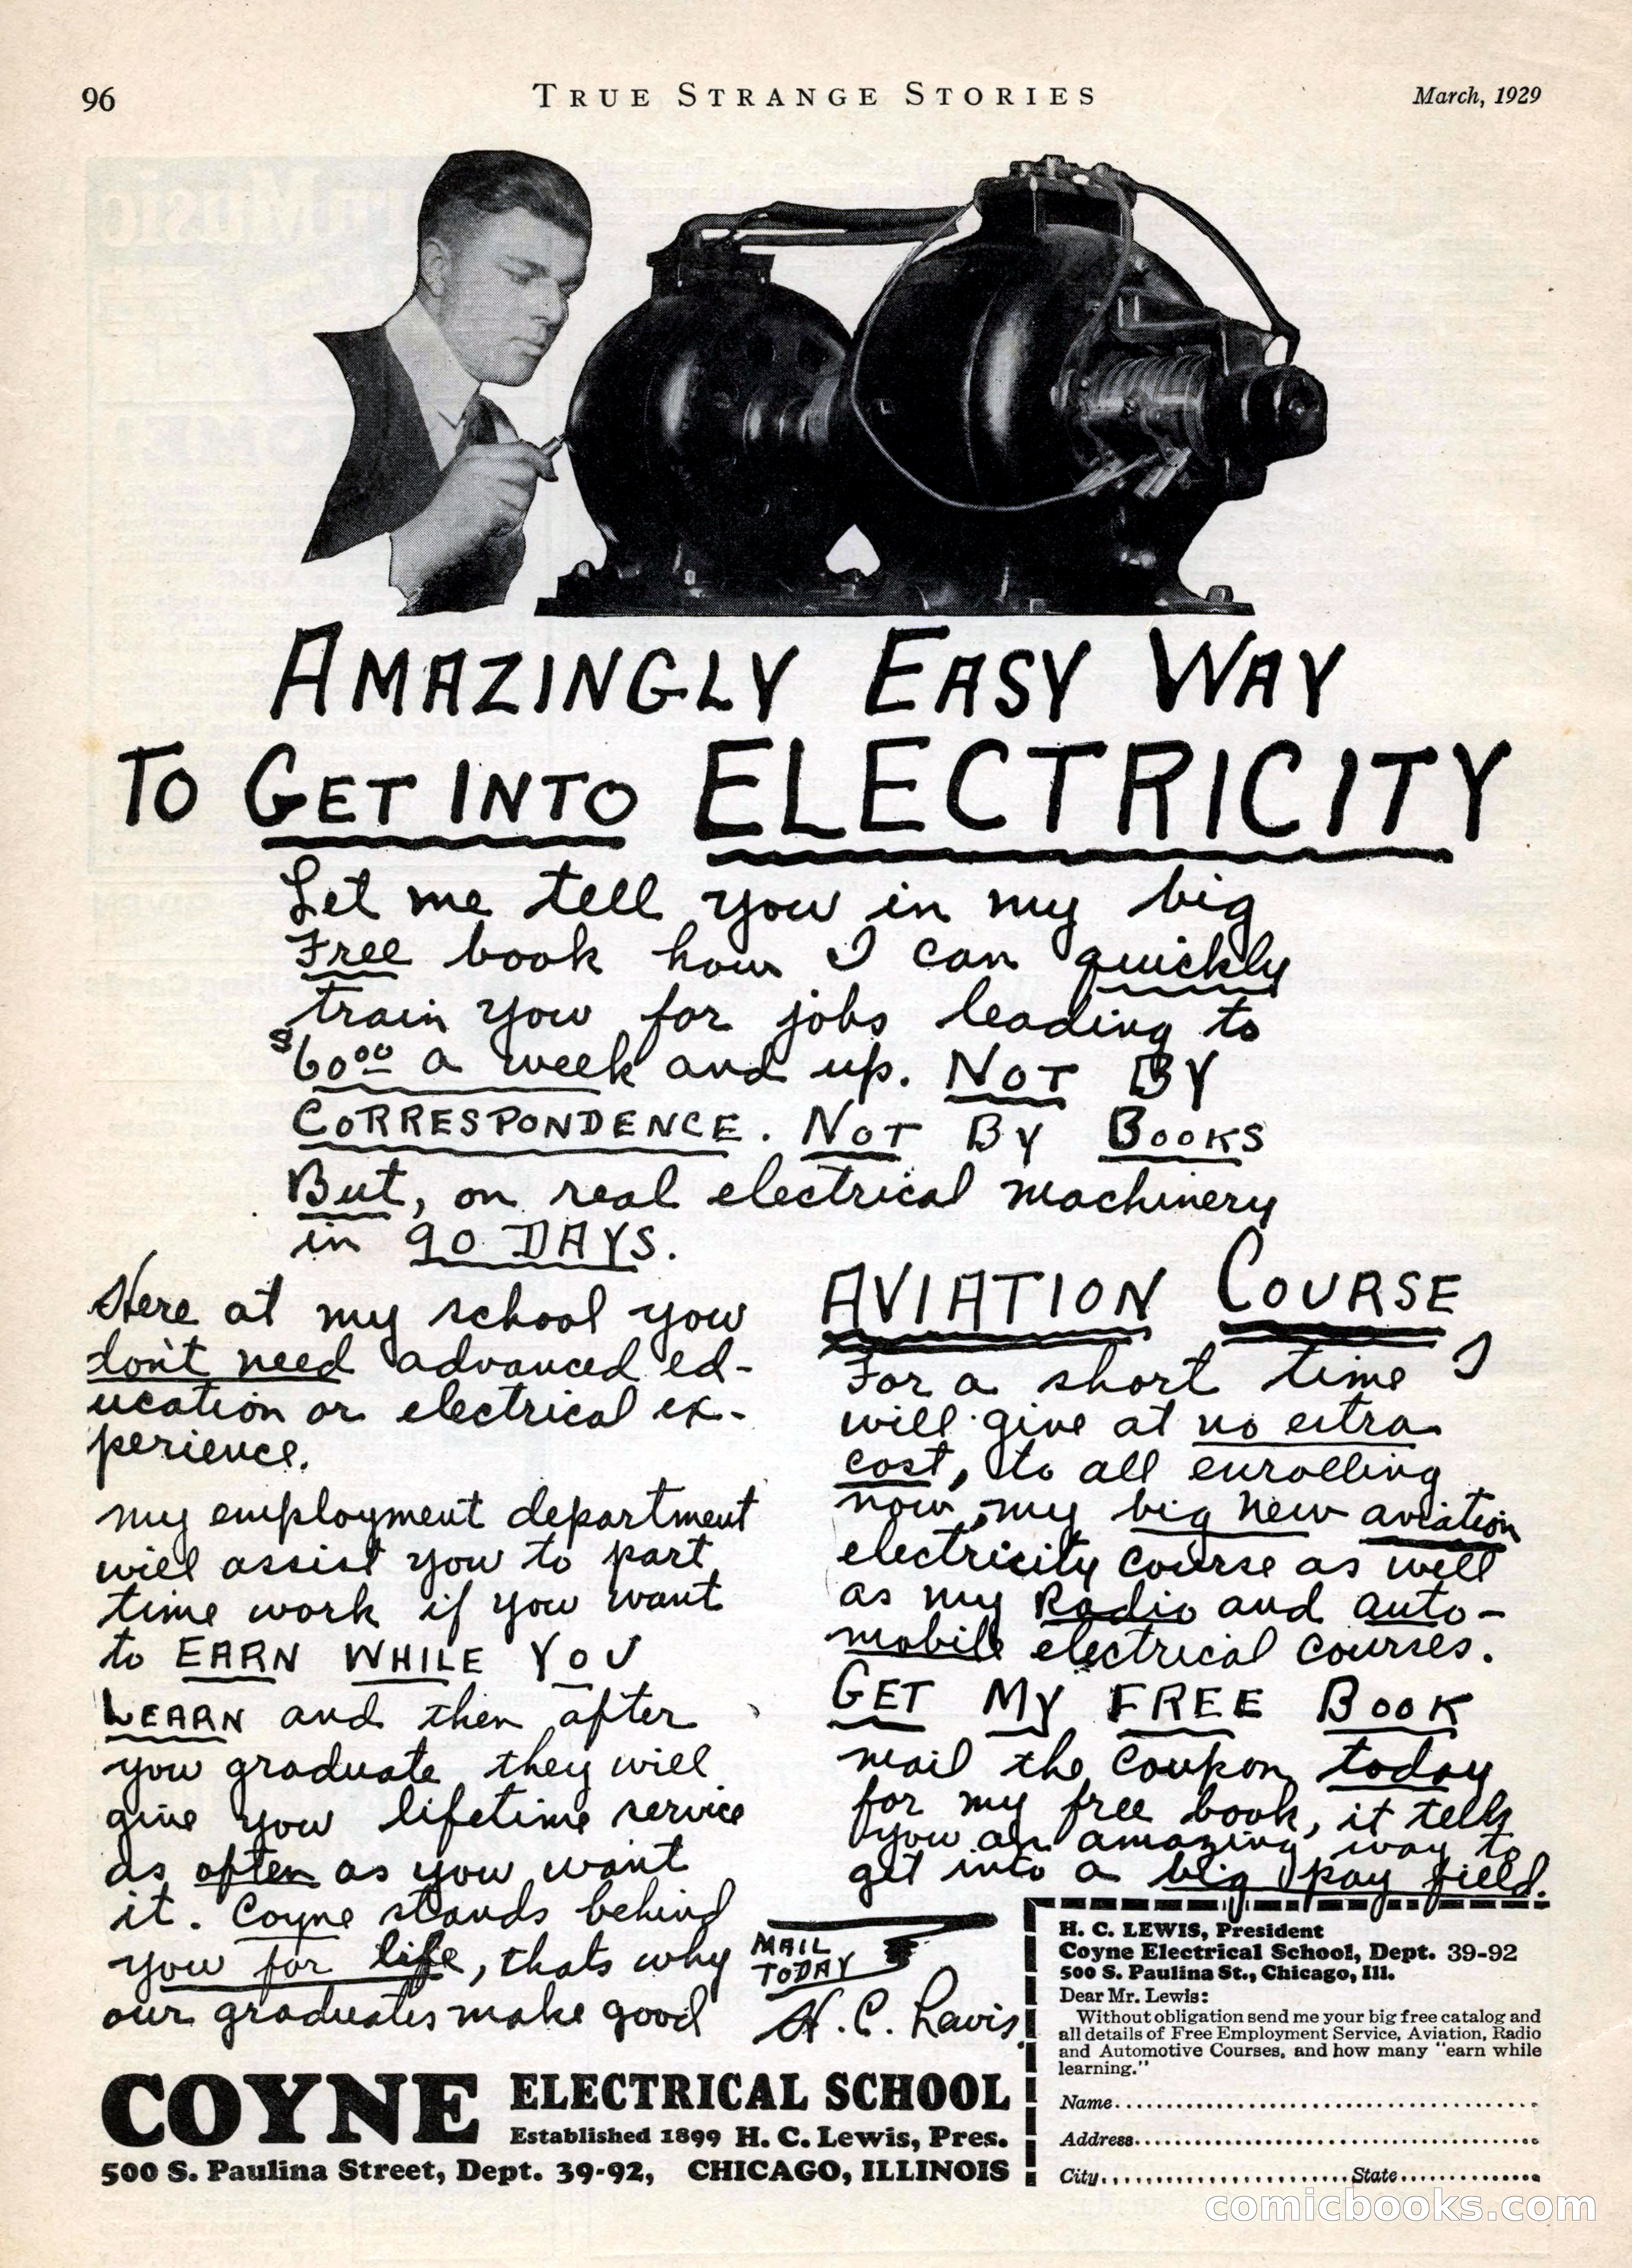 96
TRUE STRANGE STORIES
March, 1929
AMAZINGLY EASY WAY
TO GET INTO ELECTRICITY
Let me tell you in my big
Free book how I can quickly
train you for jobs leading to
$60.00 a week and up. NOT BY
CORRESPONDENCE. NOT BY BOOKS
But, on real electrical machinery
in 90 DAYS.
Here at my school you
don't need advanced ed-
ucation or electrical ex-
perience.
my employment department
will assist you to part
time work if you want
to EARN WHILE YOU
LEARN and then after
you graduate they will
give you lifetime service
as often as you want
it. Coyne stands behind
you for life, thats why
our graduates make good
AVIATION COURSE
For a short time I
will give at no extra
cost, to all enrolling
now, my big new aviation
electricity course as well
as my Radio and auto-
mobile electrical courses.
GET MY FREE BOOK
mail the coupon today
for my free book, it tells
you an amazing way to
get into a big pay field.
MAIL
TODAY
H. C. Lewis
COYNE ELECTRICAL SCHOOL
Established 1899 H. C. Lewis, Pres.
500 S. Paulina Street, Dept. 39-92, CHICAGO, ILLINOIS
H. C. LEWIS, President
Coyne Electrical School, Dept. 39-92
500 S. Paulina St., Chicago, Ill.
Dear Mr. Lewis:
Without obligation send me your big free catalog and
all details of Free Employment Service, Aviation, Radio
and Automotive Courses, and how many "earn while
learning."
Name
Address
City State
comicbooks.com